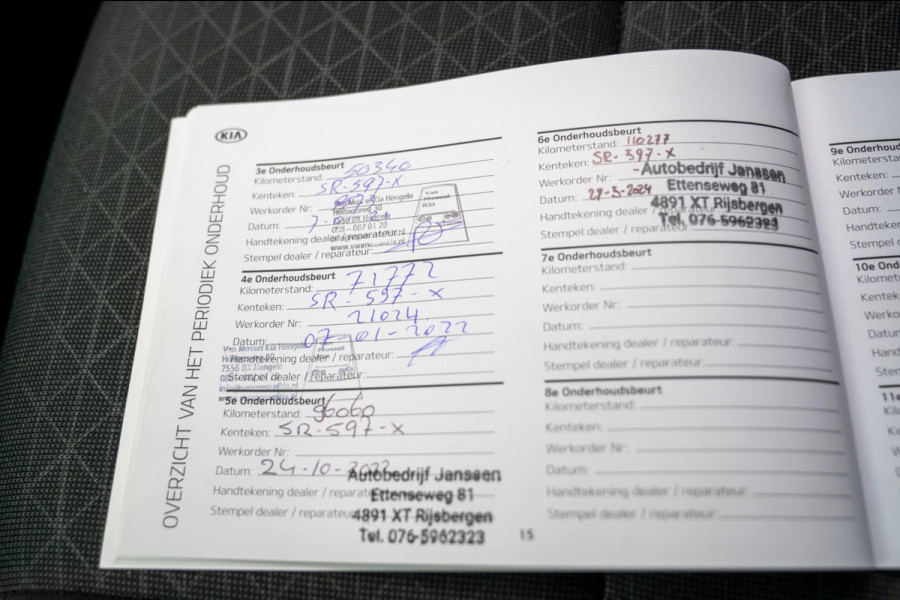 KIA
OVERZICHT VAN HET PERIODIEK ONDERHOUD
3e Onderhoudsbeurt
Kilometerstand: 50340
Kenteken: SR-597-X
Werkorder Nr:
Datum: 7-
Handtekening dealer / reparateur:
Stempel dealer / reparateur:
Van Mossel Kia Hengelo
7556 BX Hengelo
087 01 20
www.vanmossel
Van Mossel Kia
4e Onderhoudsbeurt
Kilometerstand: 71772
Kenteken: SR-597-X
Werkorder Nr: 21024
Datum: 07-01-2022
Handtekening dealer / reparateur:
Stempel dealer / reparateur:
Van Mossel Kia Hengelo
7556 BX Hengelo
5e Onderhoudsbeurt
Kilometerstand: 96060
Kenteken: SR-597-X
Werkorder Nr:
Datum: 24-10-2022
Handtekening dealer / reparateur
Stempel dealer / reparateur
Autobedrijf Janssen
Ettenseweg 81
4891 XT Rijsbergen
Tel. 076-5962323
15
6e Onderhoudsbeurt
Kilometerstand: 110277
Kenteken: SR-597-X
Werkorder Nr:
Datum: 29-3-2024
Handtekening dealer / reparateur
Stempel dealer / reparateur
Autobedrijf Janssen
Ettenseweg 81
4891 XT Rijsbergen
Tel. 076-5962323
7e Onderhoudsbeurt
Kilometerstand:
Kenteken:
Werkorder Nr:
Datum:
Handtekening dealer / reparateur:
Stempel dealer / reparateur:
8e Onderhoudsbeurt
Kilometerstand:
Kenteken:
Werkorder Nr:
Datum:
Handtekening dealer / reparateur:
Stempel dealer / reparateur:
9e Onderhoudsbeurt
Kilometerstand
Kenteken:
Werkorder
Datum:
Handtekening
Stempel
10e Ond
Kilomete
Kentek
Werko
Datum
Hand
Stem
11e
Kil
Ke